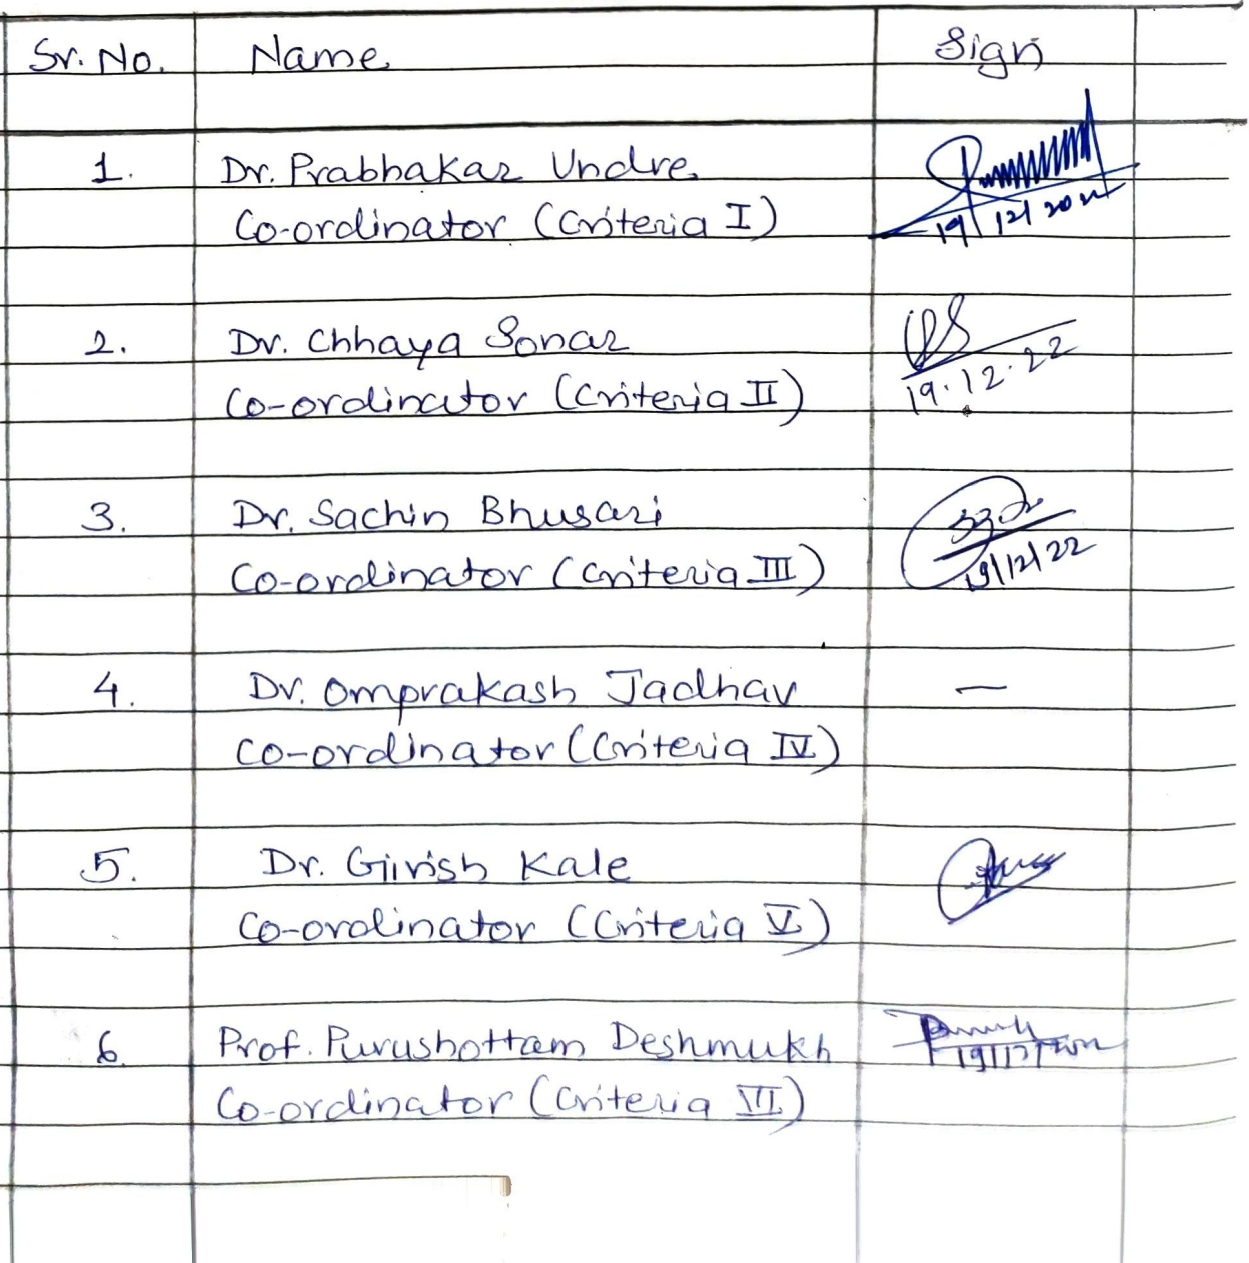 Sr. No. Name Sign
1. Dr. Prabhakar Undre
Co-ordinator (Criteria I)
19/12/2022
2. Dr. Chhaya Sonar
Co-ordinator (Criteria II)
19.12.22
3. Dr. Sachin Bhusari
Co-ordinator (Criteria III)
19/12/22
4. Dr. Omprakash Jadhav —
Co-ordinator (Criteria IV)
5. Dr. Girish Kale
Co-ordinator (Criteria V)
6. Prof. Purushottam Deshmukh
Co-ordinator (Criteria VI)